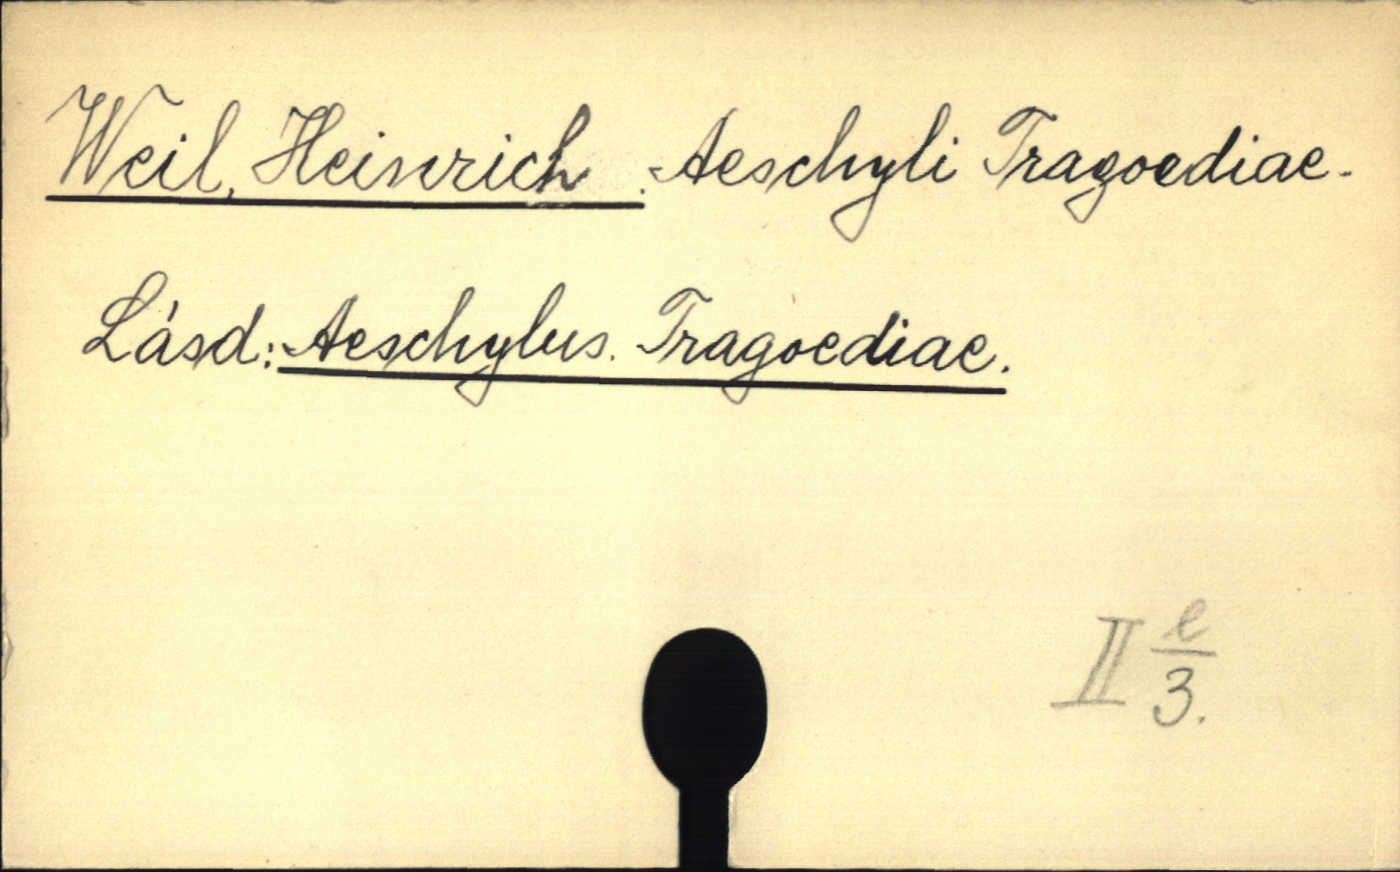 Weil, Heinrich. Aeschyli Tragoediae.
Lásd: Aeschylus. Tragoediae.
II e/3.